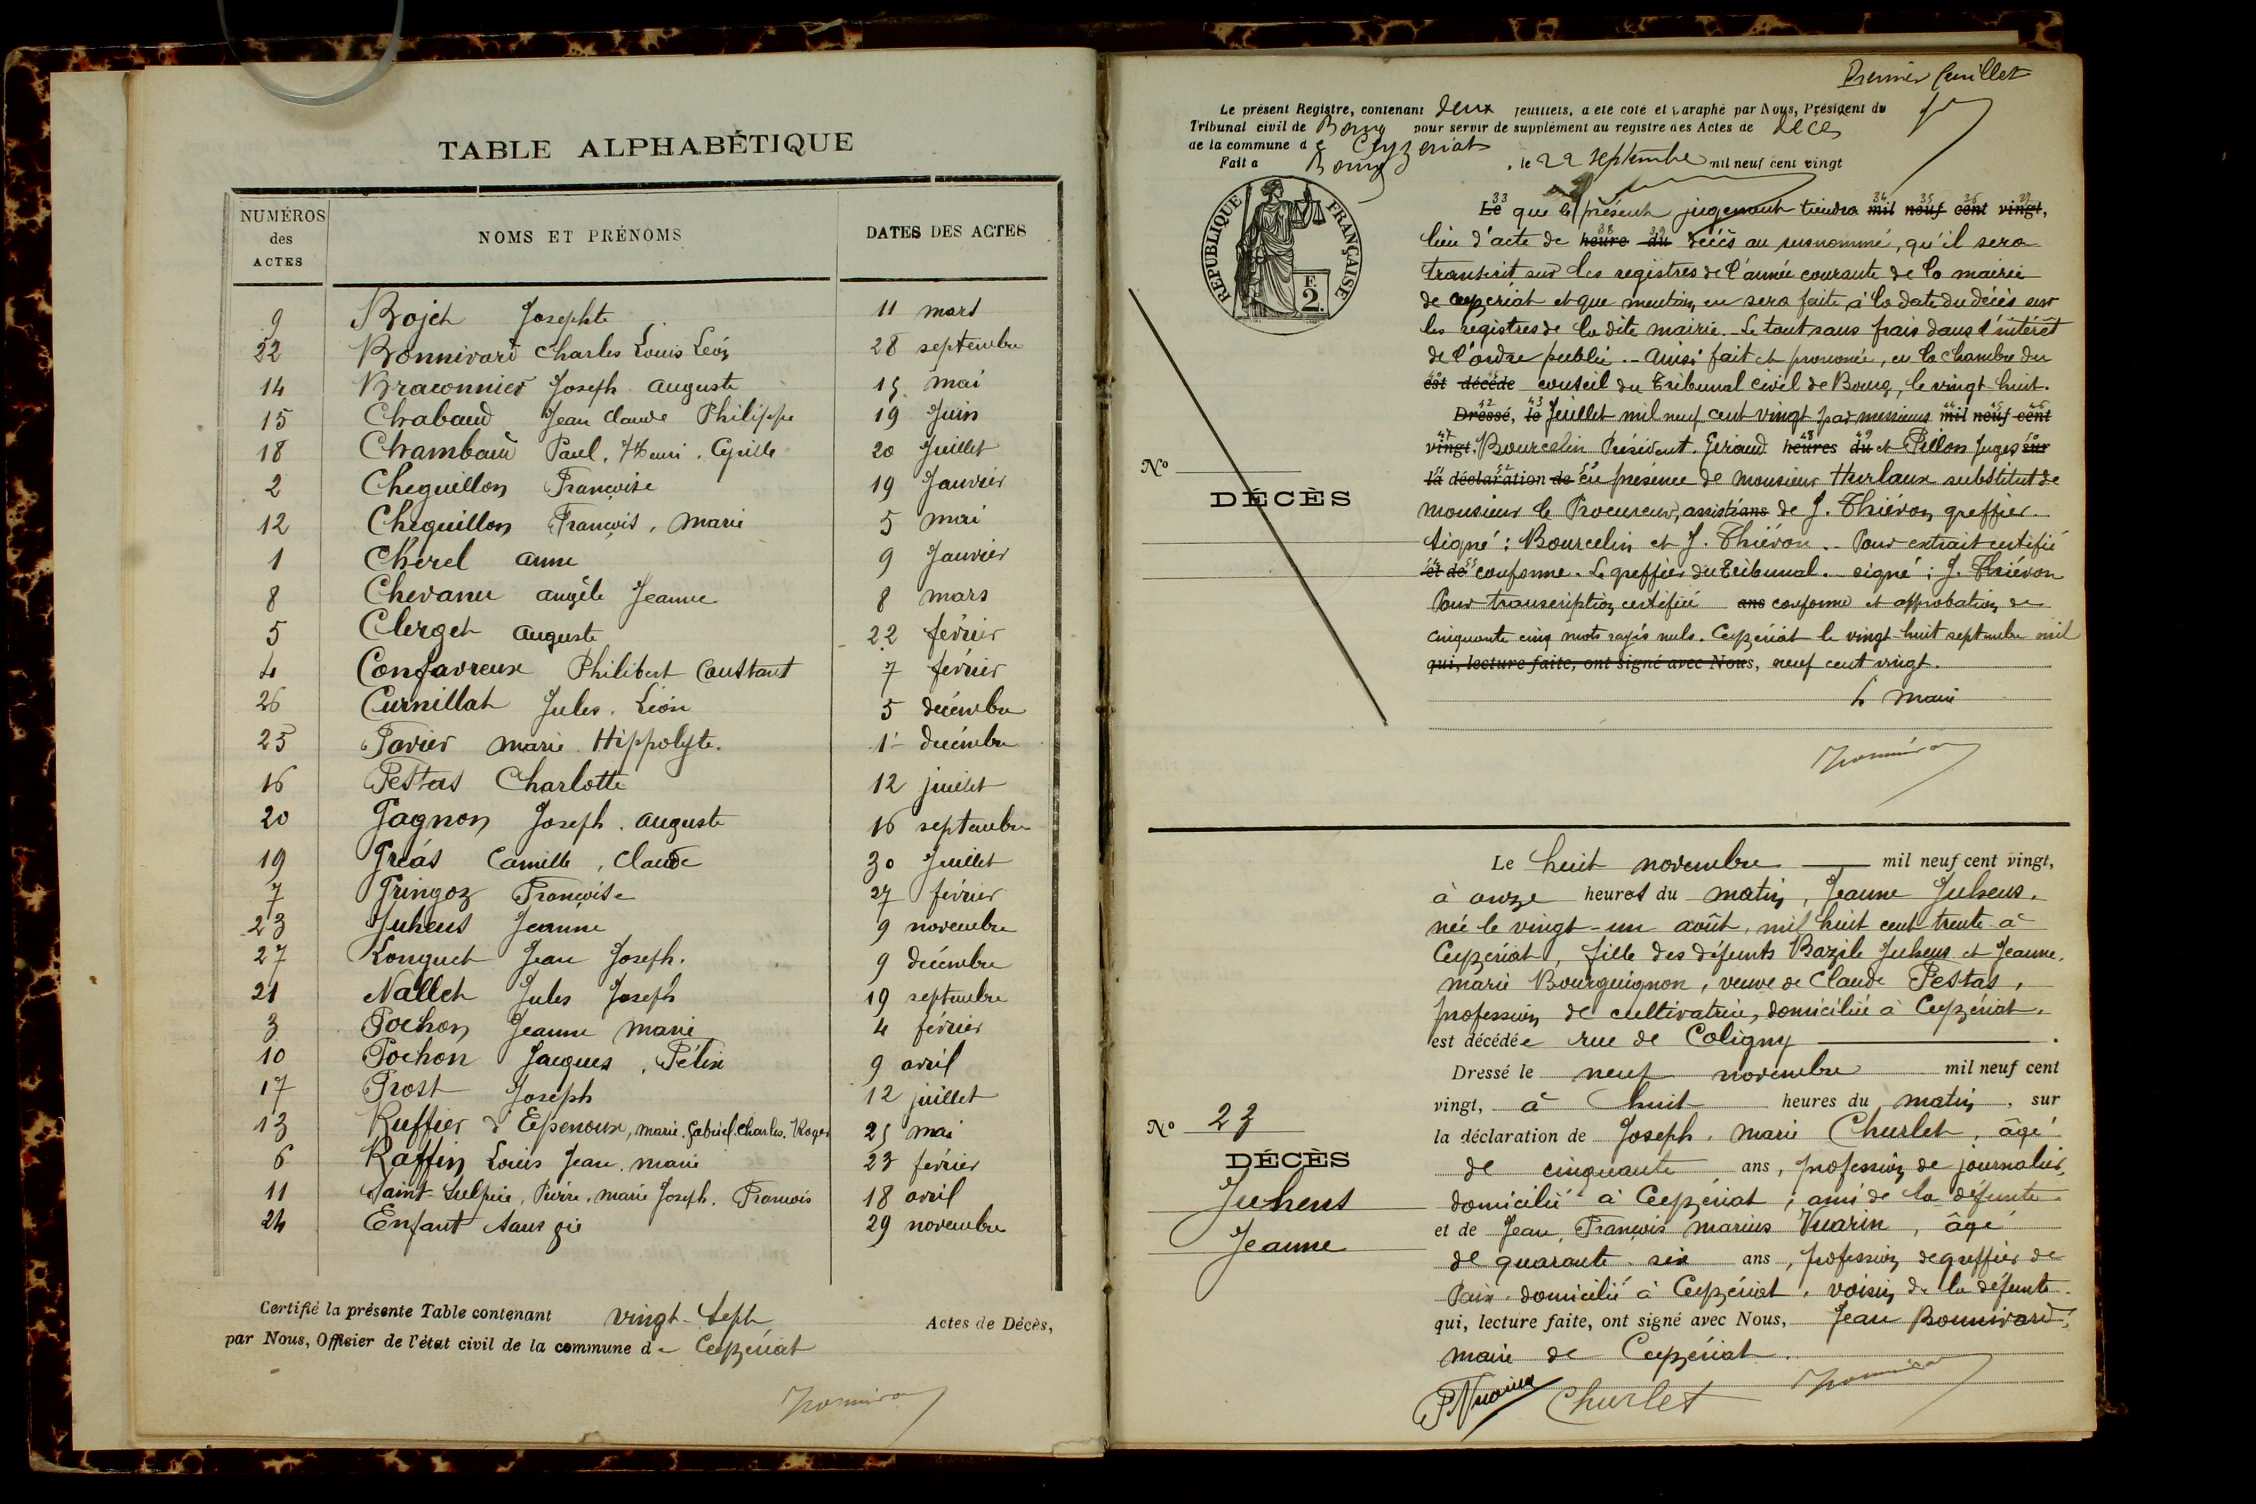 TABLE ALPHABÉTIQUE
NUMÉROS des ACTES NOMS ET PRÉNOMS DATES DES ACTES
9 Bojet Josephte 11 mars
22 Bonnivard Charles Louis Léon 28 septembre
14 Braconnier Joseph Auguste 15 mai
15 Chabaud Jean Claude Philippe 19 Juin
18 Chambaud Paul, Henri, Cyrille 20 Juillet
2 Cheguillon Françoise 19 Janvier
12 Cheguillon François, Marie 5 mai
1 Chérel Anne 9 Janvier
8 Chevanne Angèle Jeanne 8 mars
5 Clerget Auguste 22 février
4 Confavreux Philibert Constant 7 février
26 Curnillat Jules Léon 5 décembre
25 Favier Marie Hippolyte 1er décembre
16 Festas Charlotte 12 juillet
20 Gagnon Joseph Auguste 16 septembre
19 Gréas Camille, Claude 30 Juillet
7 Gringoz Françoise 27 février
23 Juhens Jeanne 9 novembre
27 Longuet Jean Joseph. 9 décembre
21 Nallet Jules Joseph 19 septembre
3 Pochon Jeanne Marie 4 février
10 Pochon Jacques, Félix 9 avril
17 Prost Joseph 12 juillet
13 Ruffier d'Epenoux, Marie Gabriel Charles Roger 25 mai
6 Raffin Louis Jean Marie 23 février
11 Saint-Sulpice, Pierre, Marie Joseph, François 18 avril
24 Enfant sans vie 29 novembre
Certifié la présente Table contenant vingt-sept Actes de Décès,
par Nous, Officier de l'état civil de la commune de Ceyzériat
Premier feuillet
Le présent Registre, contenant deux feuillets, a été coté et paraphé par Nous, Président du
Tribunal civil de Bourg pour servir de supplément au registre des Actes de décès
de la commune de Ceyzériat
Fait à Bourg, le 22 septembre mil neuf cent vingt
RÉPUBLIQUE FRANÇAISE
E 2.
33 Le que le présent jugement tiendra 34 mil 35 neuf 36 cent 37 vingt,
lieu d'acte de 38 heure 39 du décès au susnommé, qu'il sera
transcrit sur les registres de l'année courante de la mairie
de Ceyzériat et que mention en sera faite à la date du décès sur
les registres de la dite mairie. Le tout sans frais dans l'intérêt
de l'ordre public. - Ainsi fait et prononcé, en la chambre du
est décédé conseil du Tribunal civil de Bourg, le vingt-huit.
42 Dressé, 43 le Juillet mil neuf cent vingt par messieurs 44 mil 45 neuf 46 cent
47 vingt. Bourcelin Président. Giraud 48 heures 49 du et Pillon Juges sur
la déclaration de en présence de monsieur Hurlaux substitut de
monsieur le Procureur, assistés ans de J. Thiévon, greffier.
Signé: Bourcelin et J. Thiévon. - Pour extrait certifié
et de conforme. Le greffier du Tribunal. signé: J. Thiévon
Pour transcription certifiée ans conforme et approbation de
cinquante cinq mots rayés nuls. Ceyzériat le vingt-huit septembre mil
qui, lecture faite, ont signé avec Nous, neuf cent vingt.
Le Maire
No
DÉCÈS
Le huit novembre mil neuf cent vingt,
à onze heures du matin, Jeanne Juhens,
née le vingt-un août, mil huit cent trente à
Ceyzériat, fille des défunts Bazile Juhens et Jeanne,
Marie Bourguignon, veuve de Claude Festas,
profession de cultivatrice, domiciliée à Ceyzériat,
est décédée rue de Coligny.
Dressé le neuf novembre mil neuf cent
vingt, à huit heures du matin, sur
la déclaration de Joseph, Marie Churlet, âgé
de cinquante ans, profession de journalier,
domicilié à Ceyzériat, ami de la défunte
et de Jean, François Marius Vuarin, âgé
de quarante-six ans, profession de greffier de
Paix domicilié à Ceyzériat, voisin de la défunte
qui, lecture faite, ont signé avec Nous, Jean Bonnivard,
maire de Ceyzériat.
Vuarin Churlet
No 23
DÉCÈS
Juhens
Jeanne